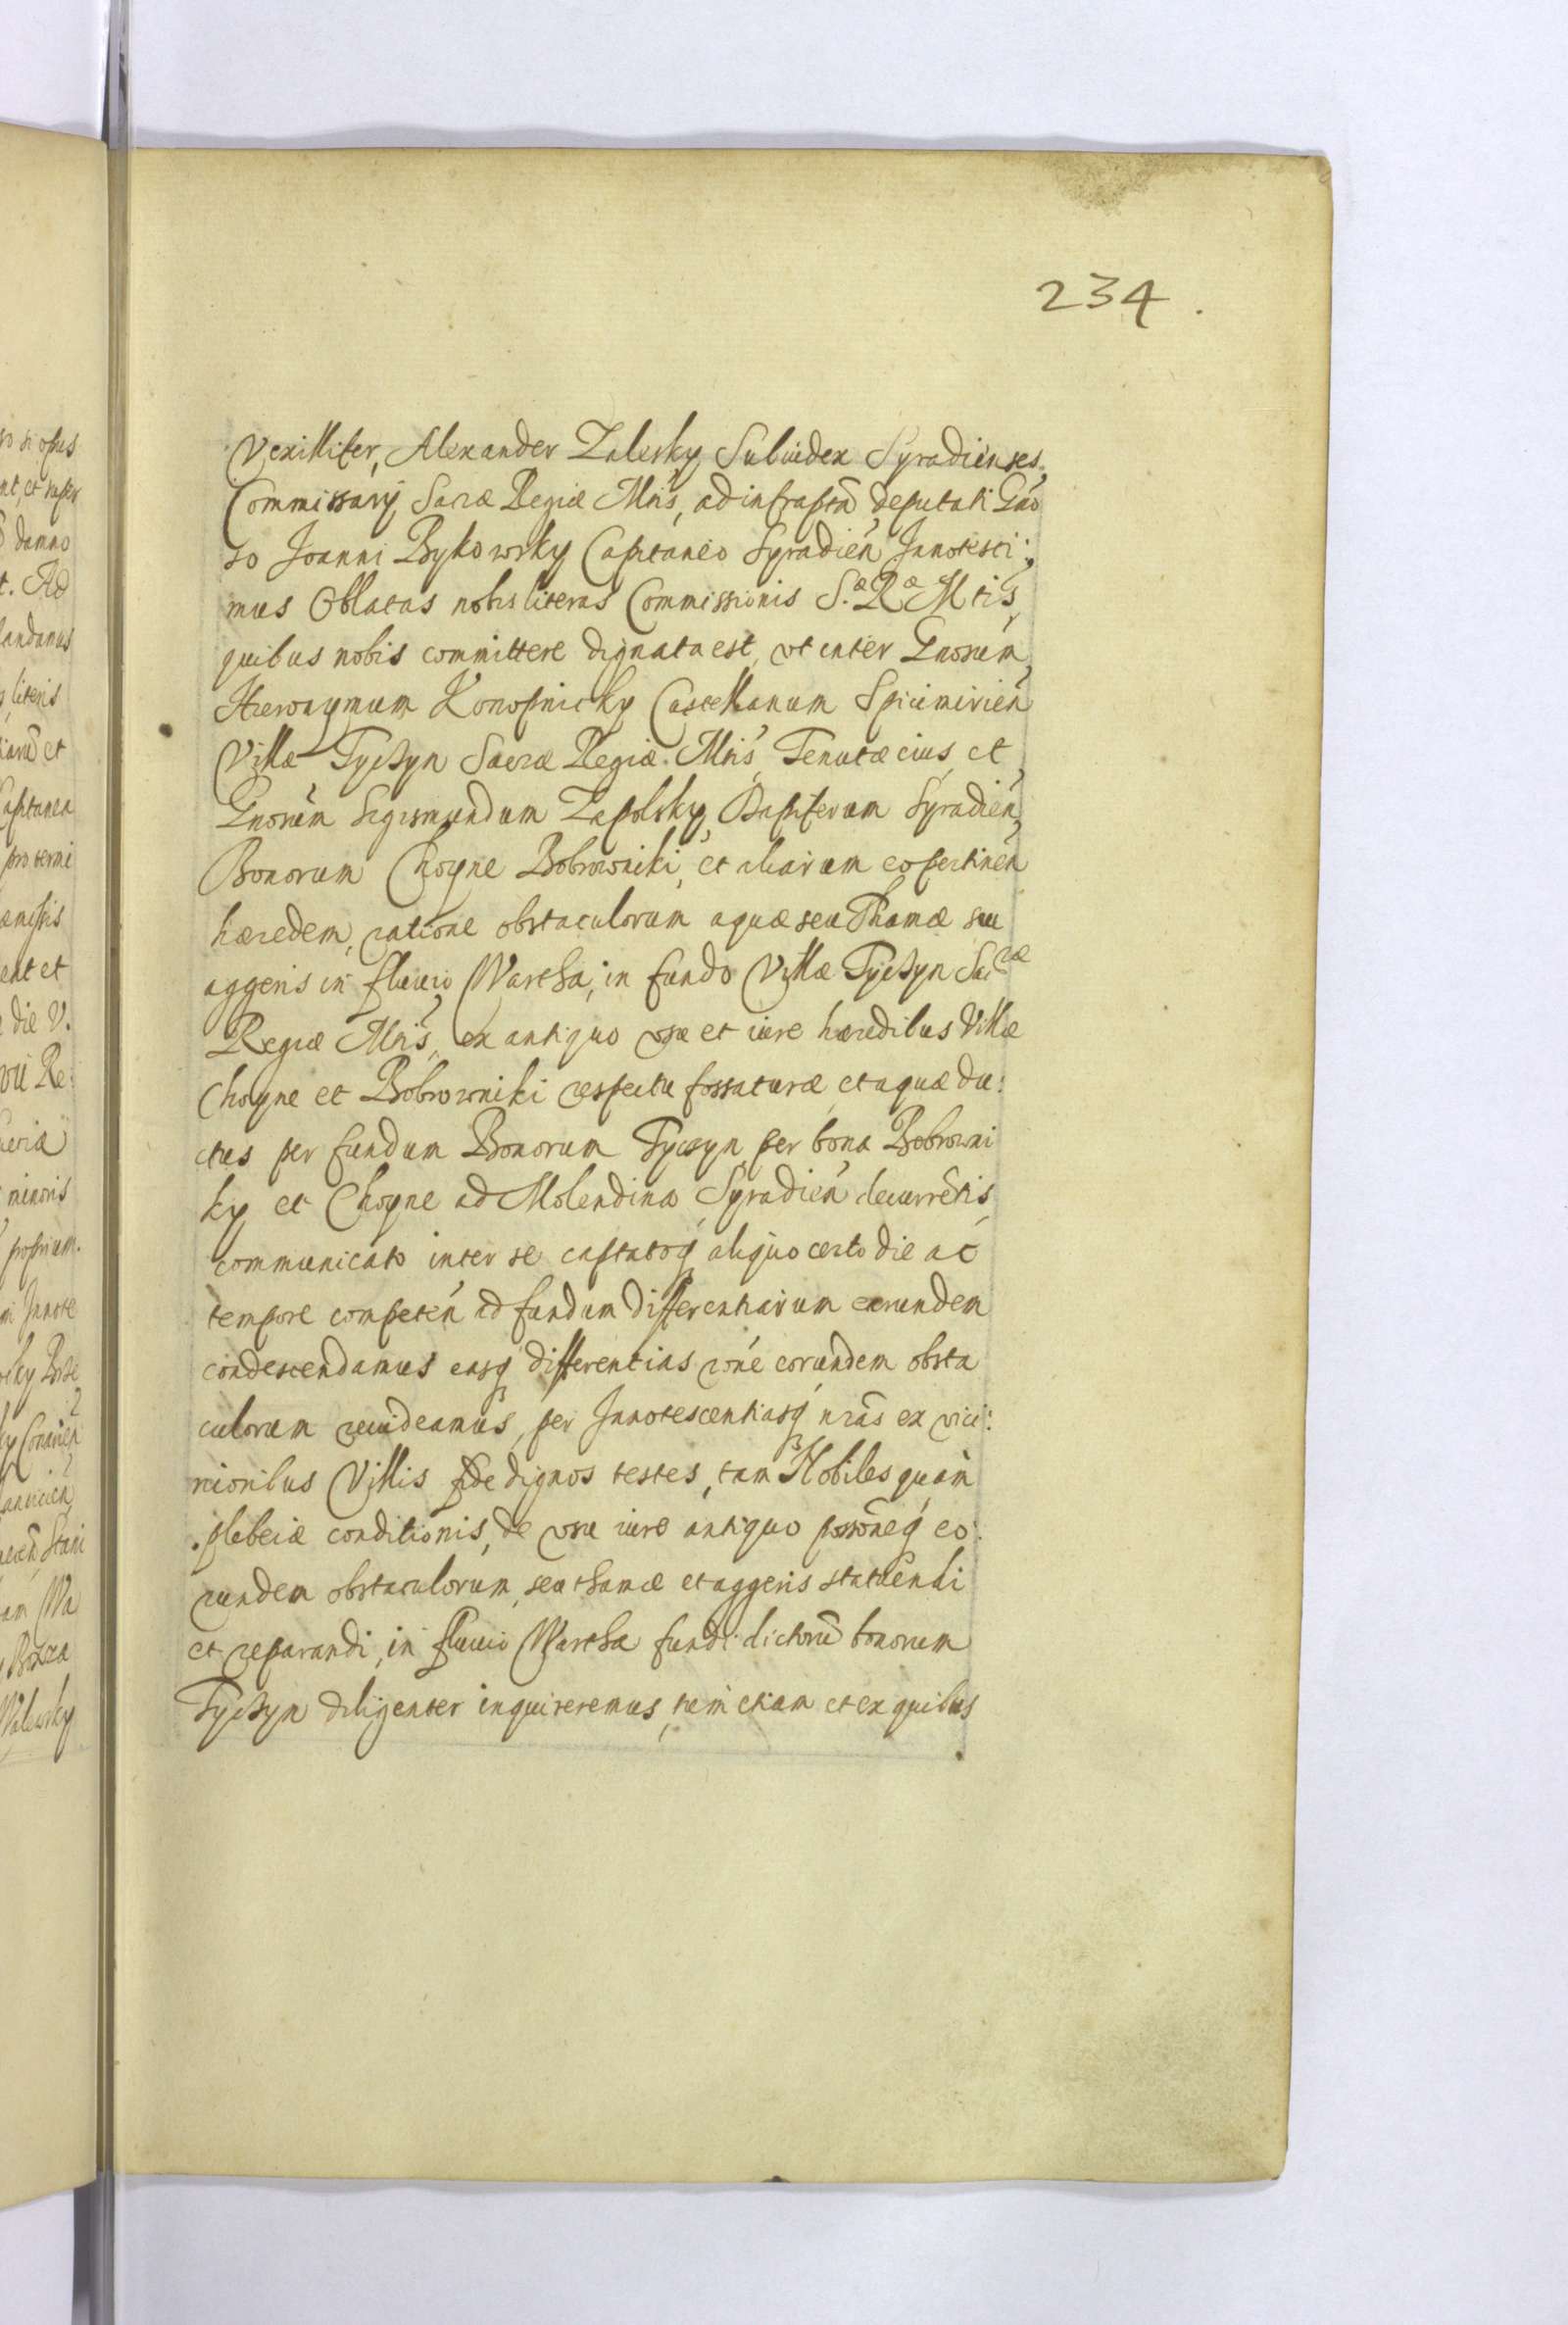 234.
Vexillifer, Alexander Zalesky Subiudex Syradienses,
Commissarij Sacræ Regiæ Mtis, ad infraptã deputati Gño
so Joanni Bykowsky Capitaneo Syradieñ Jnnotesci:
mus Oblatas nobis literas Commissionis S.æ Ræ Mtis
quibus nobis committere dignata est, vt inter Gnosum
Hieronymum Konopnicky Castellanum Spicimirieñ
Villæ Tyczyn Sacræ Regiæ Mtis Tenutæ eius et
Gnosum Sigismundum Zapolsky Dapiferum Syradieñ
Bonorum Choyne Bobrowniki, et aliarum eo pertineñ
hæredem, ratione obstaculorum aquæ seu Thamæ siue
aggeris in fluuio Wartha, in fundo Villæ Tyczyn Sacræ
Regiæ Mtis, ex antiquo vsu et iure hæredibus Villæ
Choyne et Bobrowniki respectu fossaturæ et aquæ du:
ctus per fundum Bonorum Tyczyn per bona Bobrowni
ky et Choyne ad Molendina Syradieñ decurrẽtis,
communicato inter se captatoq aliquo certo die ac
tempore competeñ ad fundum differentiarum earundem
condescendamus easq differentias rõne eorundem obsta
culorum reuideamus, per Jnnotescentiasq nrãs ex vici:
nioribus Villis fide dignos testes, tam Nobiles quam
plebeiæ conditionis, de vsu iure antiquo possõneq eo:
rundem obstaculorum, seu thamæ et aggeris statuendi
et reparandi, in fluuio Wartha fundi dictorũ bonorum
Tyczyn diligenter inquireremus, tum etiam et ex quibus